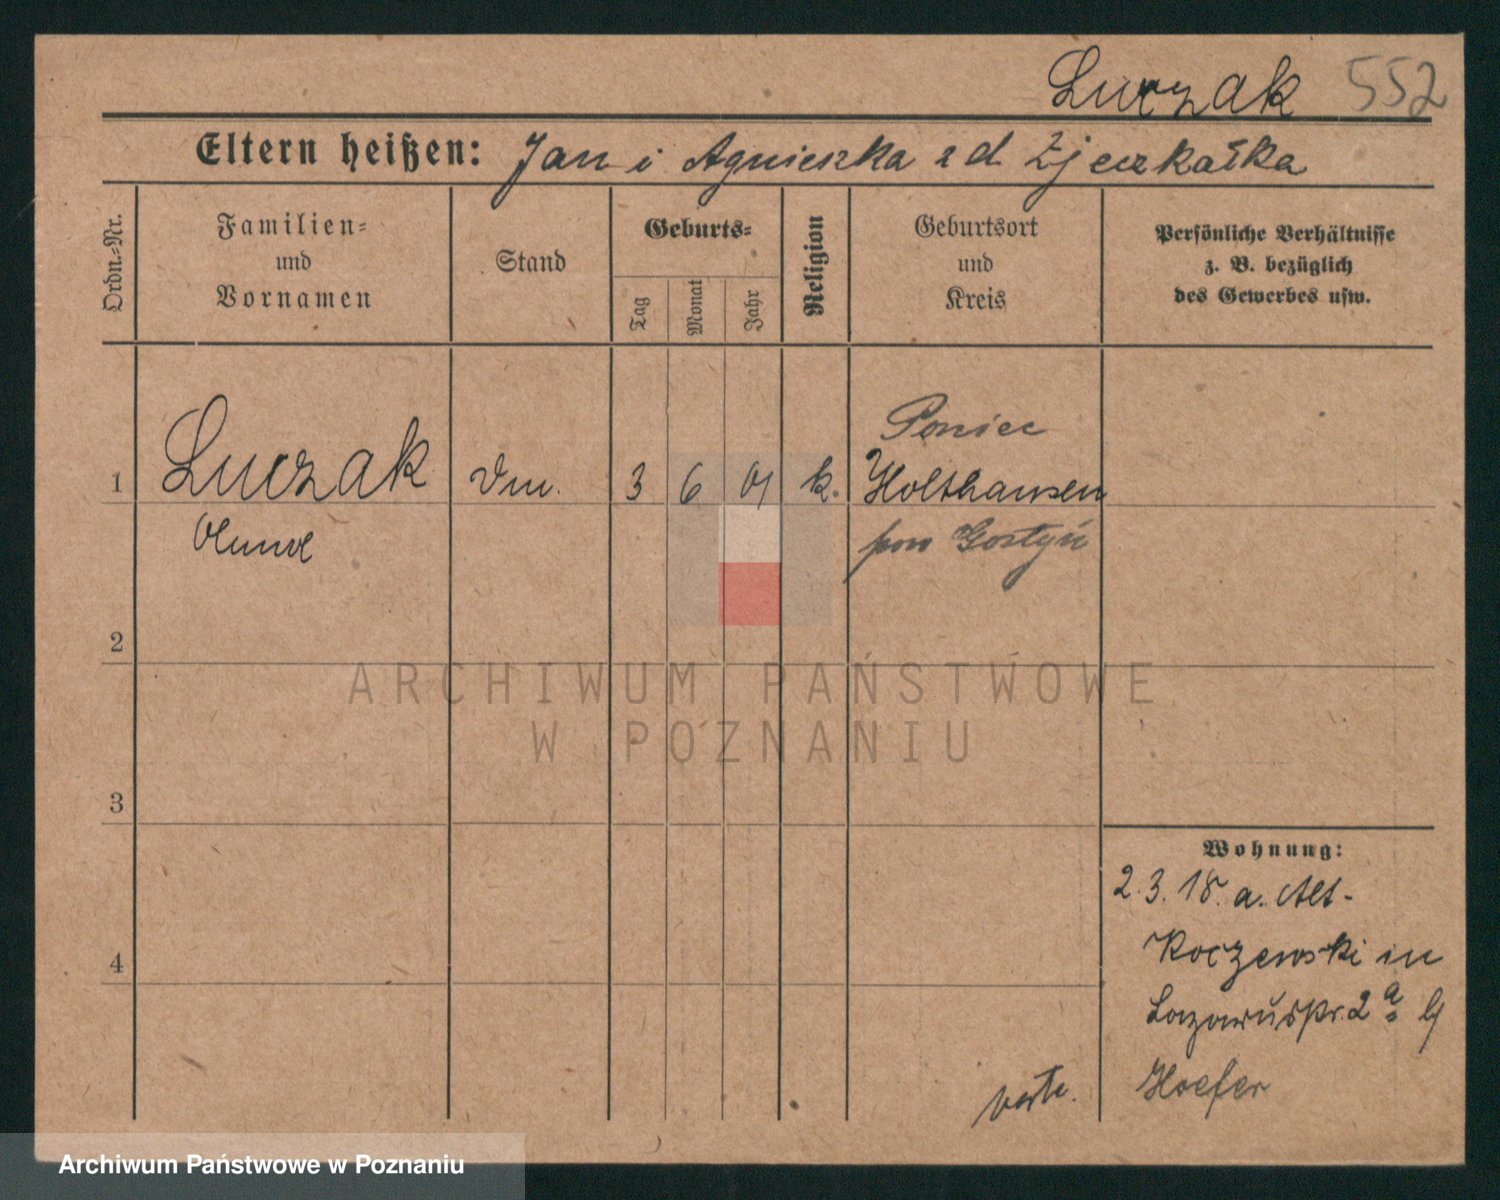 Luczak 552
Eltern heißen: Jan i Agnieszka z d
Ordn.-Nr.
Familien-
und
Vornamen
Stand
Geburts-
Tag
Monat
Jahr
Religion
Geburtsort
und
Kreis
Persönliche Verhältnisse
z. B. bezüglich
des Gewerbes usw.
Poniec
1 Luczak 3 6 01 k. Holthausen
pow Gostyń
2
ARCHIWUM PAŃSTWOWE
W POZNANIU
3
Wohnung:
2.3.18. a. Alt-
Koczewski in
2a
4
Hoefer
verte.
Archiwum Państwowe w Poznaniu